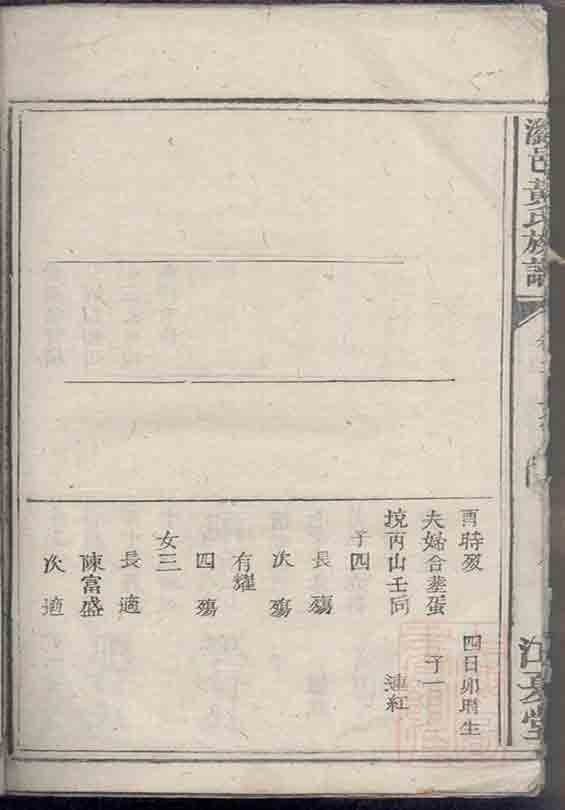 瀏邑黃氏族譜
江夏堂
酉時歿
四日卯時生
夫婦合塟蛋
子一
坑丙山壬向
連紅
子四
長殤
次殤
有耀
四殤
女三
長適
陳富盛
次適